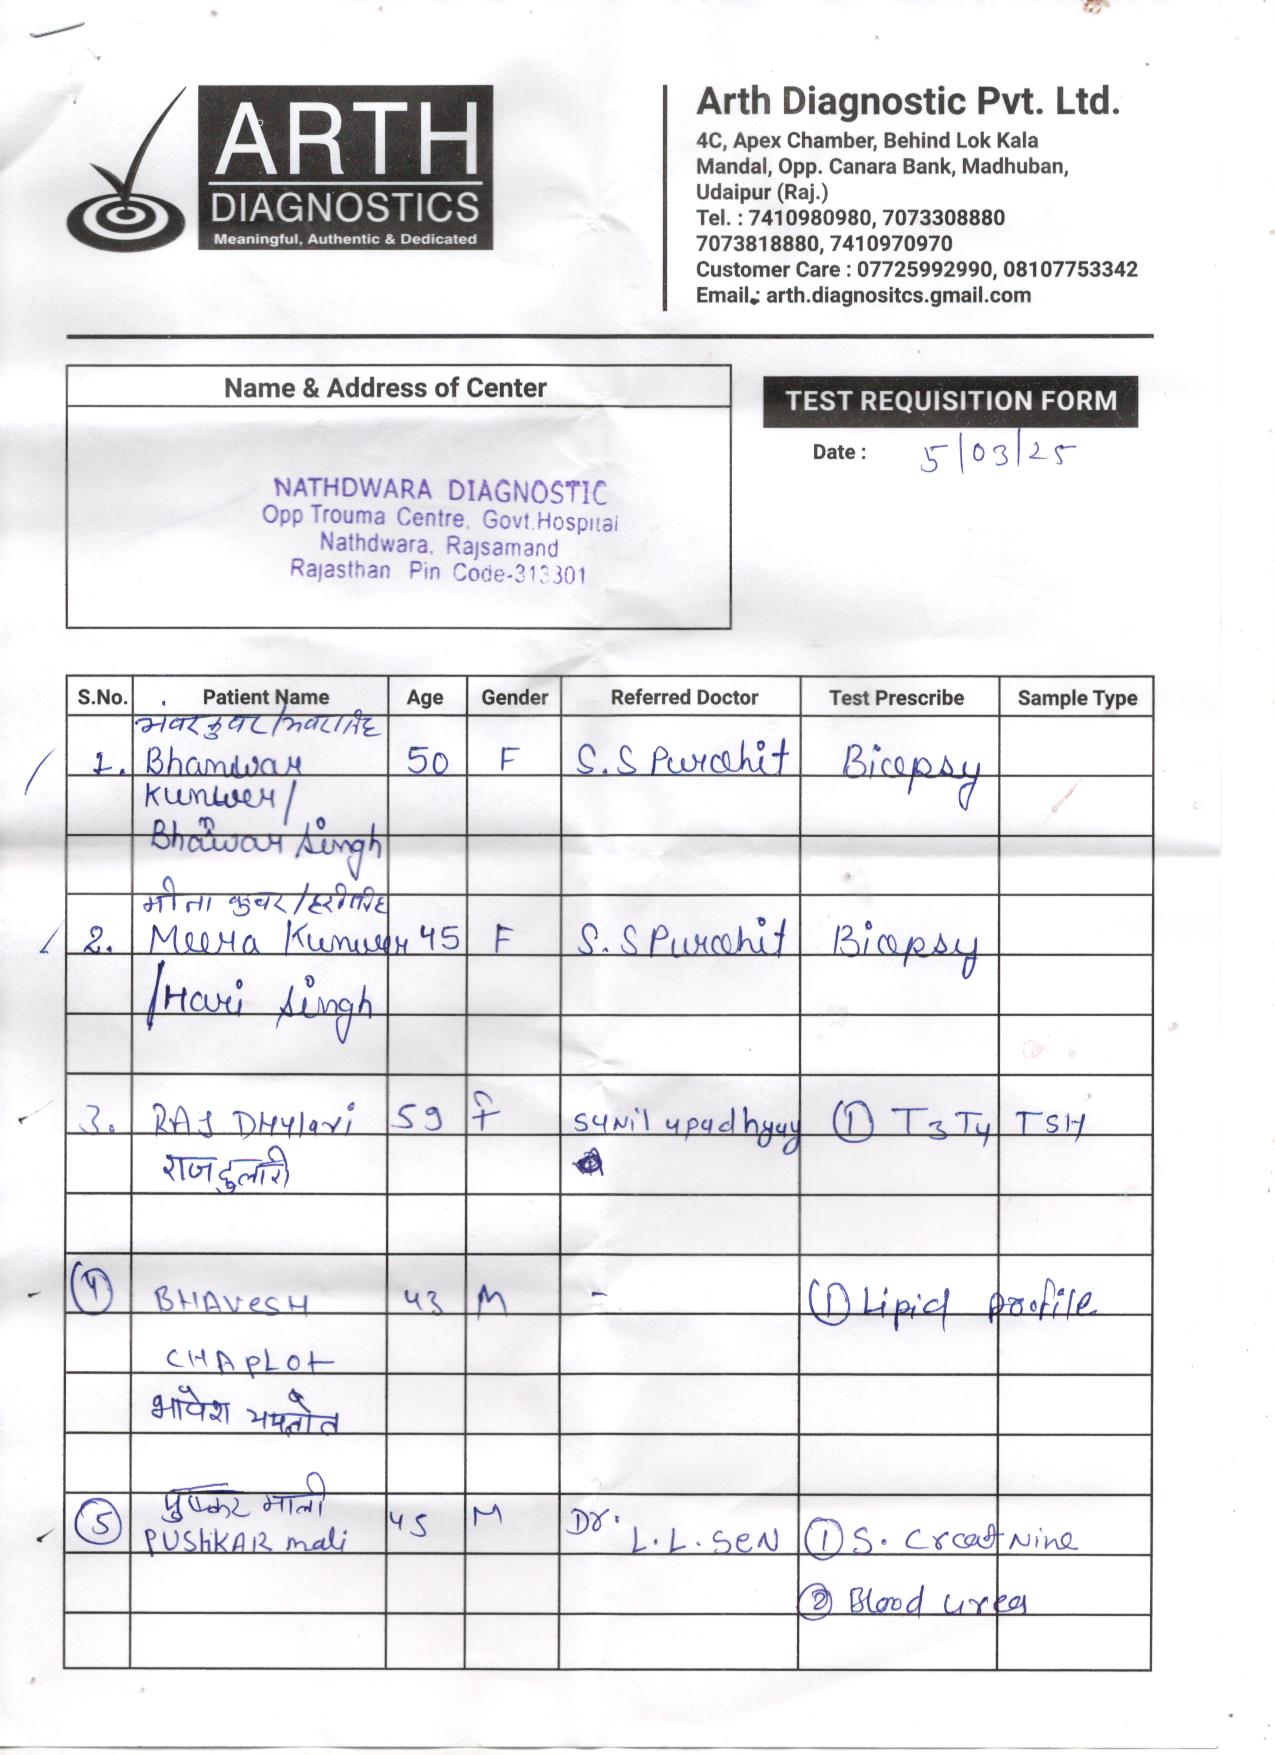 ARTH
DIAGNOSTICS
Meaningful, Authentic & Dedicated
Arth Diagnostic Pvt. Ltd.
4C, Apex Chamber, Behind Lok Kala
Mandal, Opp. Canara Bank, Madhuban,
Udaipur (Raj.)
Tel. : 7410980980, 7073308880
7073818880, 7410970970
Customer Care : 07725992990, 08107753342
Email : arth.diagnositcs.gmail.com
Name & Address of Center
TEST REQUISITION FORM
Date : 5/03/25
NATHDWARA DIAGNOSTIC
Opp Trouma Centre, Govt.Hospital
Nathdwara, Rajsamand
Rajasthan Pin Code-313301
S.No. Patient Name Age Gender Referred Doctor Test Prescribe Sample Type
भंवर कुवर /
1. Bhanwar 50 F S.S Purohit Biopsy
Kunwer/
Bhanwar Singh
कुवर /
2. Meera Kunwer 45 F S.S Purohit Biopsy
/Hari Singh
3. RAJ DHulari 59 F Sunil upadhyay ① T3 T4 TSH
राज दुलारी
④ BHAVESH 43 M - ① Lipid profile
CHAPLOT
भावेश
पुष्कर माली
⑤ PUSHKAR mali 45 M Dr. L.L. SEN ① S. Creatnine
② Blood urea